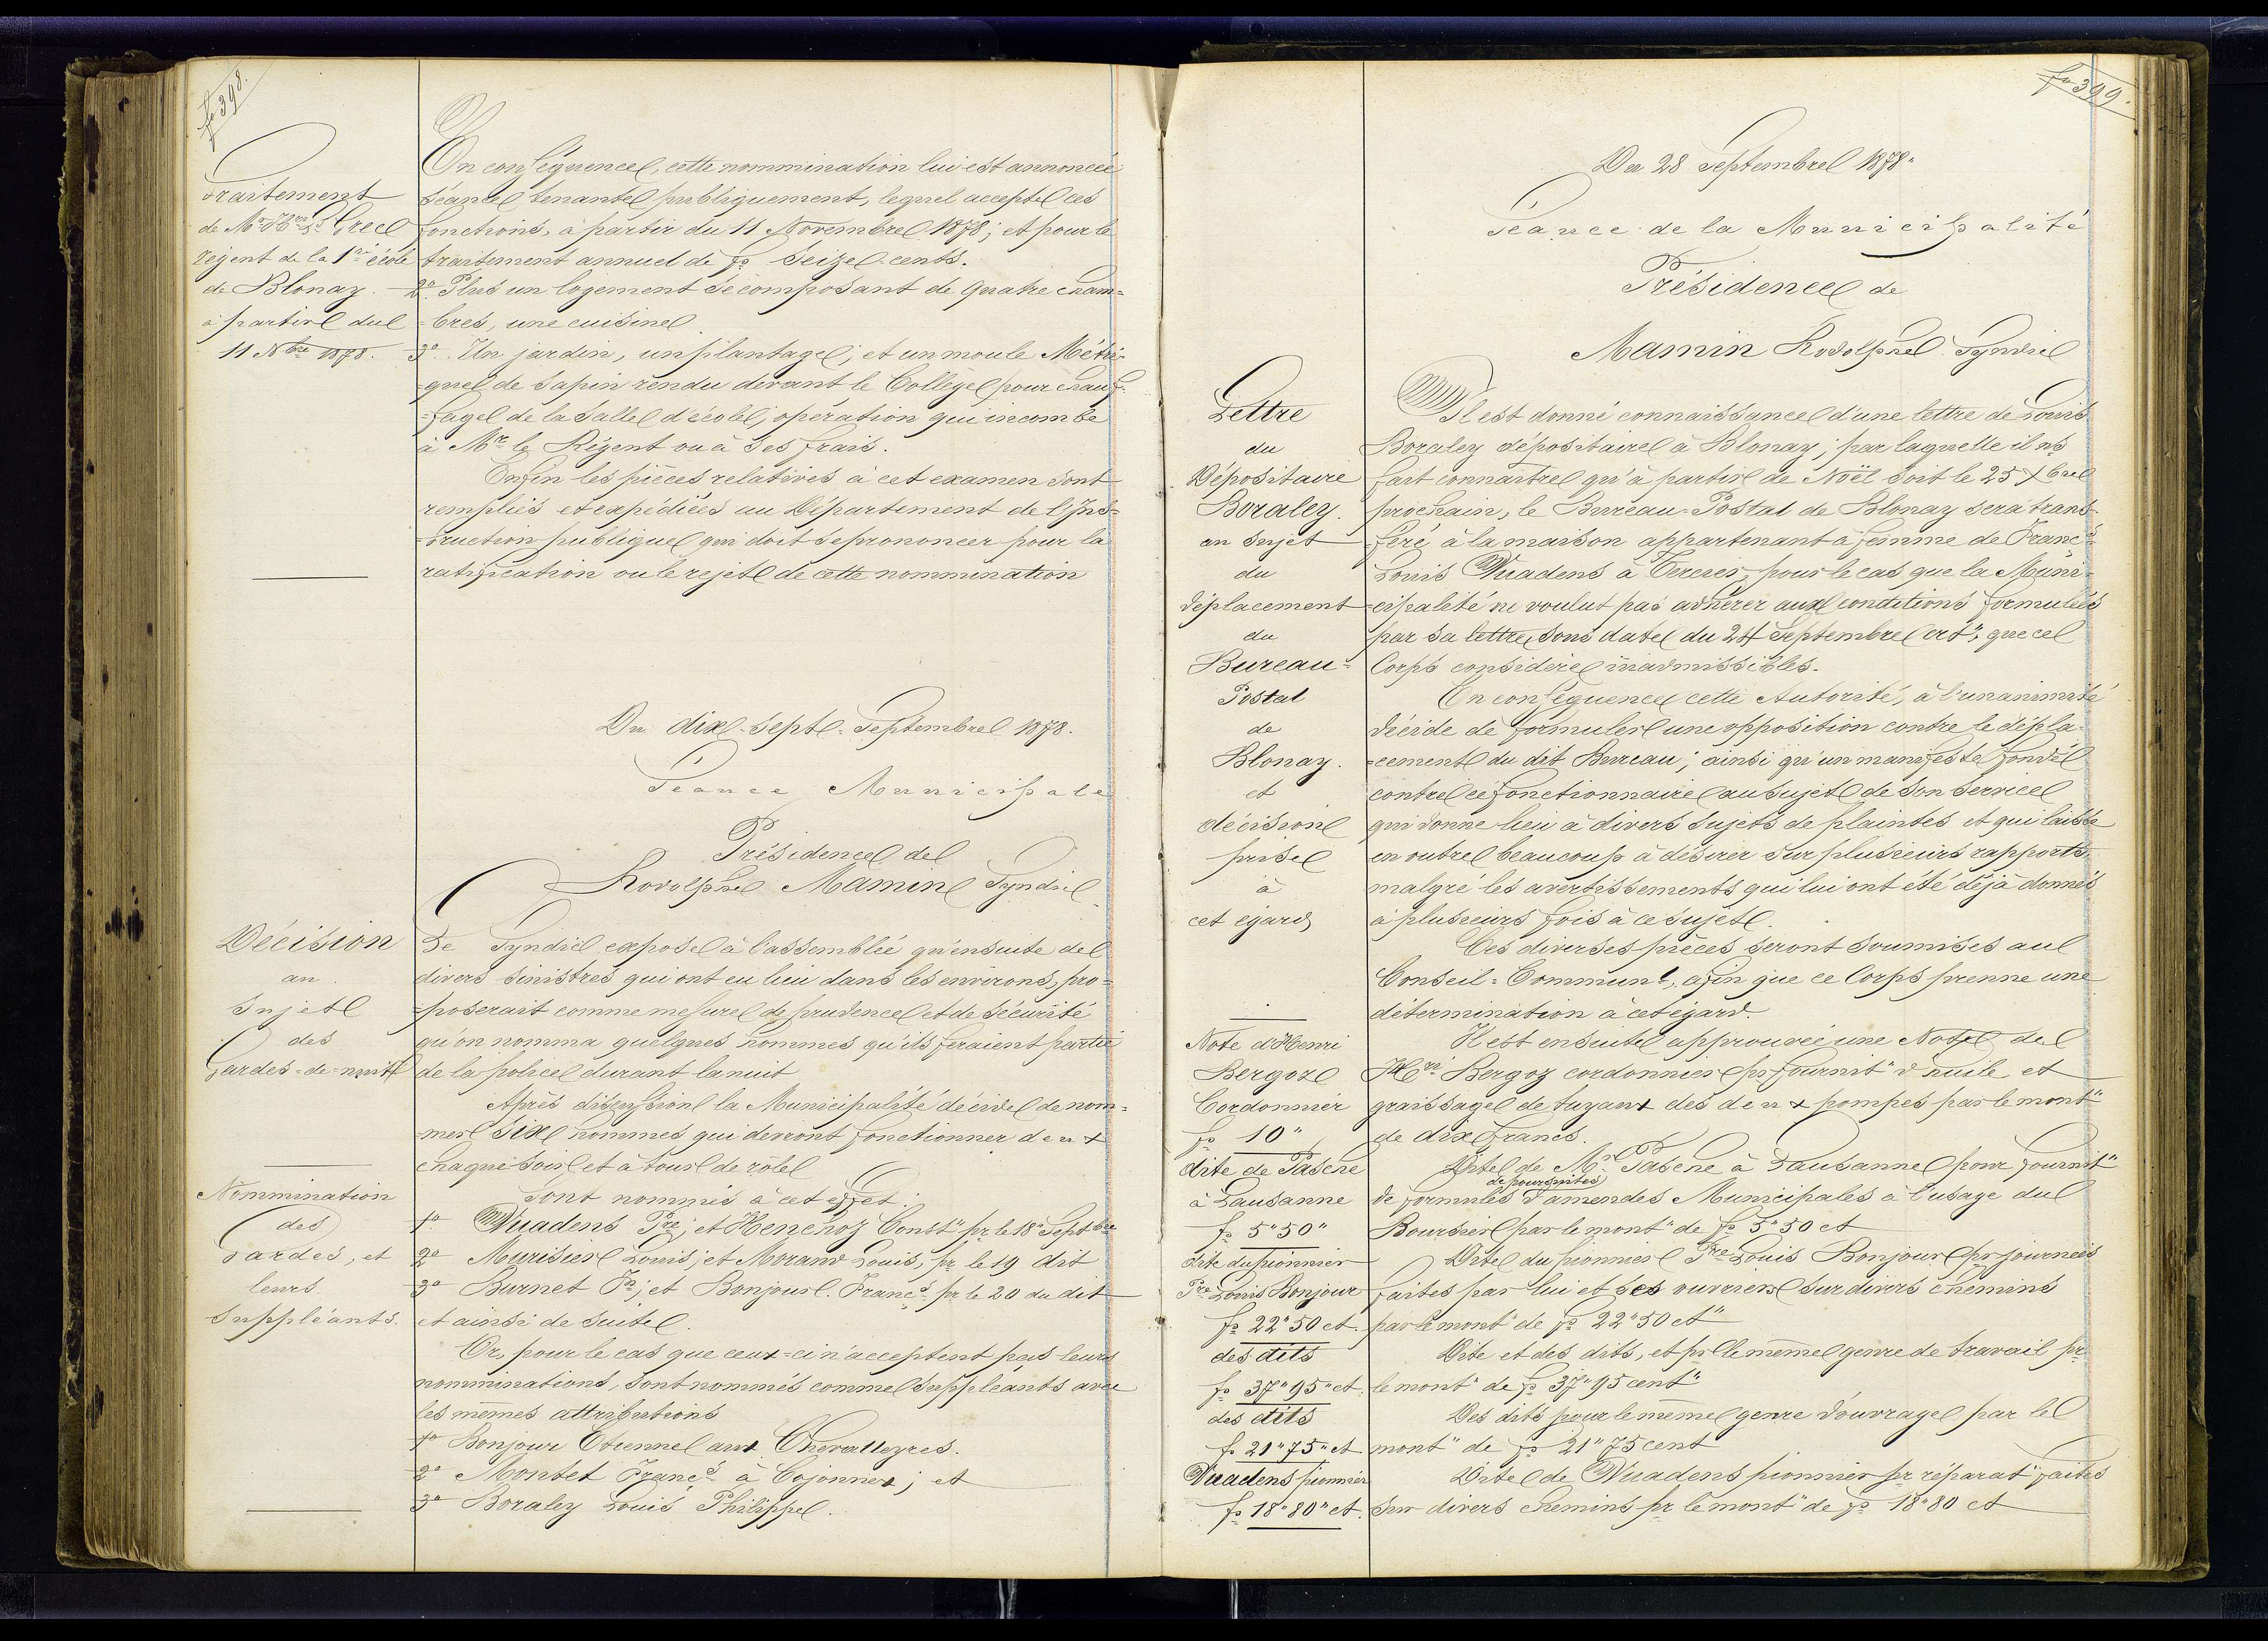 fo 398.
Traitement
de Mr Hri Ls Grec
régent de la 1re école
de Blonay.
à partir du
11 Nbre 1878.
En conséquence, cette nommination lui est annoncée
séance tenante publiquement, lequel accepte ces
fonctions, à partir du 11 Novembre 1878; et pour le
traitement annuel de fo Seize-cents.
2o Plus un logement se composant de quatre cham=
=bres, une cuisine
3o Un jardin, un plantage; et un moule Métri-
=que de sapin rendu devant le Collège pour chauf-
=fage de la salle d'école, opération qui incombe
à Mr le Régent ou à ses frais.
Enfin les pièces relatives à cet examen sont
remplies et expédiées au Département de l'Ins=
=truction publique qui doit se prononcer pour la
ratification ou le rejet de cette nommination
Du dix-sept Septembre 1878.
Séance Municipale
Présidence de
Rodolphe Mamin Syndic
Décision
au
Sujet
des
Gardes=de=nuit
Le Syndic expose à l'assemblée qu'ensuite de
divers sinistres qui ont eu lieu dans les environs, pro=
=poserait comme mesure de prudence et de sécurité
qu'on nomma quelques hommes qu'ils feraient partie
de la police durant la nuit
Après discussion la Municipalité décide de nom=
=mer six hommes qui devront fonctionner deux
chaque soir et à tour de rôle
Nommination
des
Gardes, et
leurs
Suppléants.
Sont nommés à cet effet:
1o Vuadens Pre; et Henchoz Const" pr le 18 Septbre
2o Mourisier Louis; et Morand Louis, pr le 19 dit
3o Burnet Jn; et Bonjour Françs pr le 20 du dit
et ainsi de suite.
Or, pour le cas que ceux=ci n'acceptent pas leurs
nomminations, sont nommés comme Suppléants avec
les mêmes attributions
1o Bonjour Etienne aux Chevalleyres.
2o Montet Françs à Cojonnex; et
3o Boraley Louis Philippe.
fo 399.
Du 28 Septembre 1878.
Séance de la Municipalité
Présidence de
Mamin Rodolphe Syndic
Lettre
du
Dépositaire
Boraley.
au sujet
du
déplacement
du
Bureau=
Postal
de
Blonay.
et
décision
prise
à
cet égard
Il est donné connaissance d'une lettre de Louis
Boraley dépositaire à Blonay; par laquelle il ns
fait connaître qu'à partir de Noël soit le 25 Xbre
prochain, le Bureau=Postal de Blonay sera trans-
=féré à la maison appartenant à femme de Françs
Louis Vuadens à Tercier, pour le cas que la Muni=
=cipalité ne voulut pas adhérer aux conditions formulées
par sa lettre sous date du 24 Septembre crt", que ce
Corps considère inadmissibles.
En conséquence cette Autorité, à l'unanimité
décide de formuler une opposition contre le dépla=
=cement du dit Bureau; ainsi qu'un manifeste fondé
contre ce fonctionnaire au sujet de son service
qui donne lieu à divers sujets de plaintes et qui laisse
en outre beaucoup à désirer sur plusieurs rapports,
malgré les avertissements qui lui ont été déjà donnés
à plusieurs fois à ce sujet.
Ces diverses pièces seront soumises au
Conseil=Communl, afin que ce Corps prenne une
détermination à cet égard.
Note d'Henri
Bergoz
Cordonnier
fo 10"
Il est ensuite approuvée une Note de
Hri Bergoz cordonnier pr fournit" d'huile et
graissage de tuyaux des deux pompes par le mont"
de dix francs.
dite de Pasche
à Lausanne
fo 5"50"
Dite de Mr Pasche à Lausanne pour fournit"
de poursuites
de formules d'amendes Municipales à l'usage du
Boursier par le mont" de fo 5"50 ct
dite du pionnier
Pre Louis Bonjour
fo 22"50 ct.
Dite du pionnier Pre Louis Bonjour pr journées
faites par lui et ses ouvriers sur divers chemins
par le mont" de fo 22"50 ct"
des dits
fo 37"95"ct.
Dite et des dits, et pr le même genre de travail pr
le mont" de fo 37"95 cent"
des dits
fo 21"75"ct
Des dits pour le même genre d'ouvrage par le
mont" de fo 21"75 cent
Vuadens pionnier
fo 18"80"ct.
Dite de Vuadens pionnier pr réparat" faites
sur divers chemins pr le mont" de fo 18"80 ct